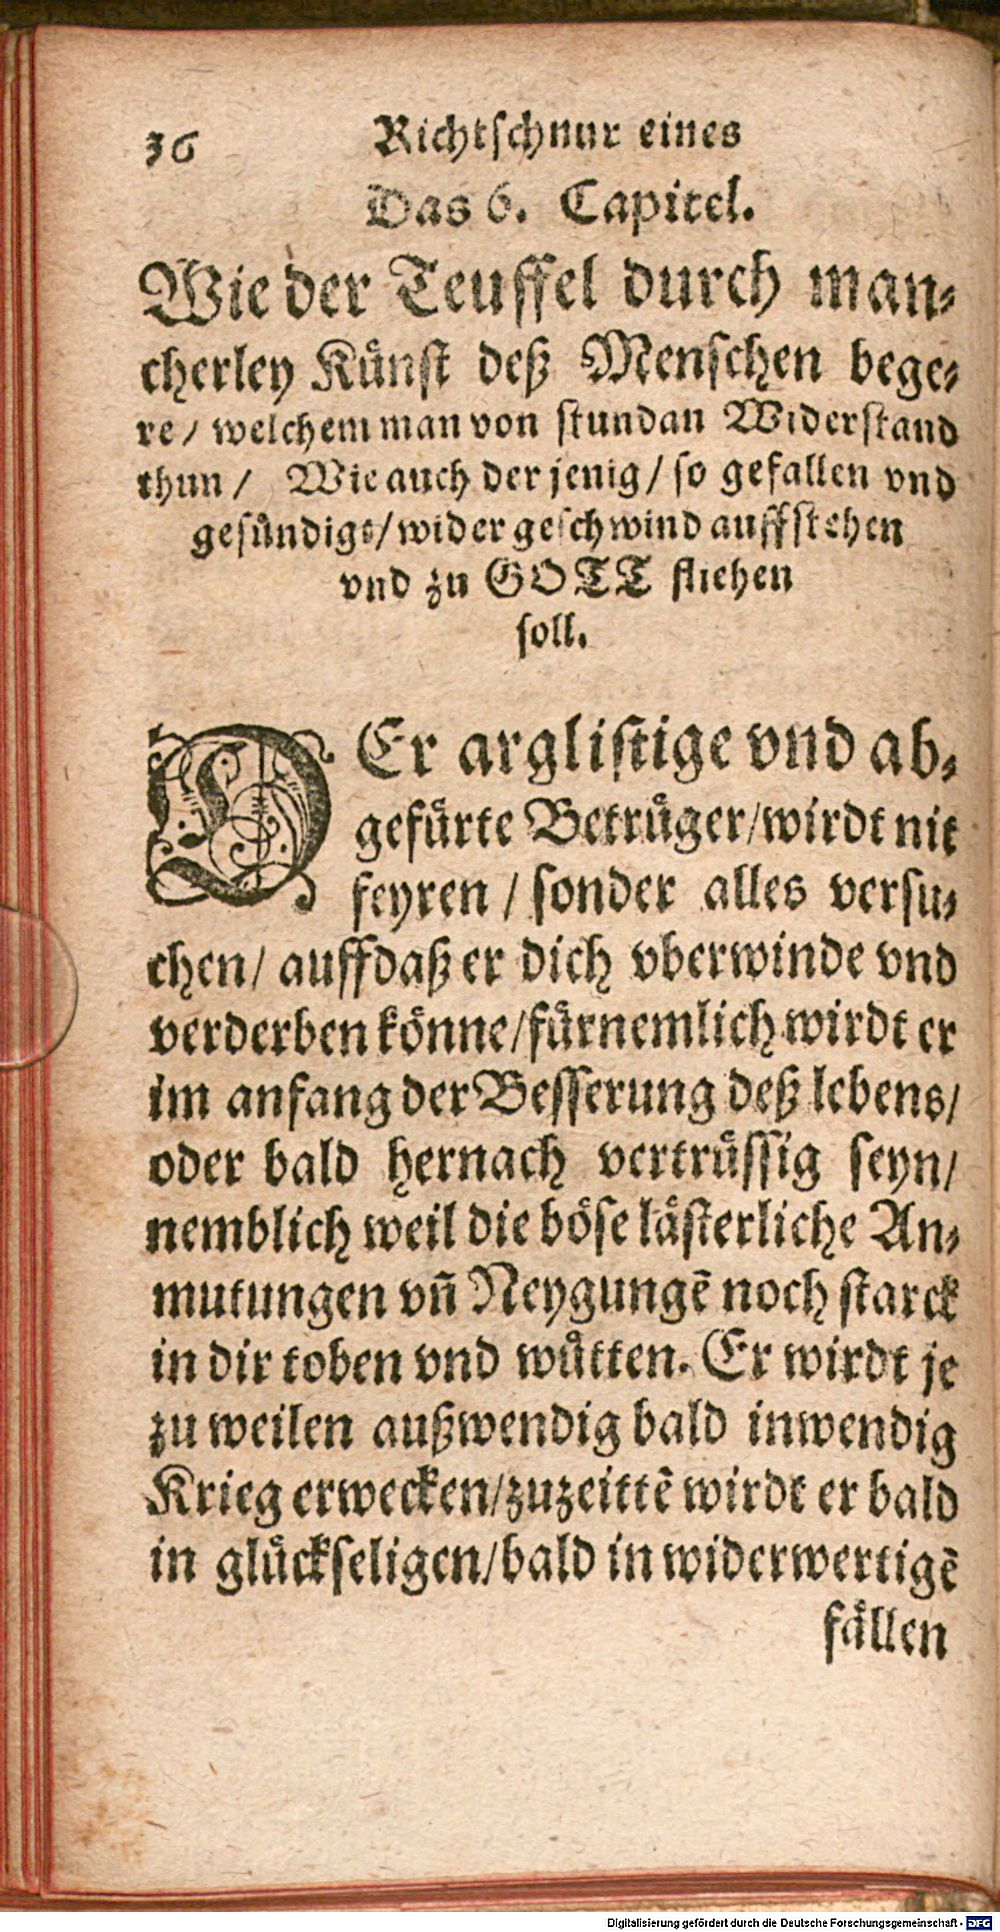 36 Richtschnur eines
Das 6. Capitel.
Wie der Teuffel durch man-
cherley Künst deß Menschen bege-
re/ welchem man von stundan Widerstand
thun/ Wie auch der jenig/ so gefallen vnd
gesündigt/ wider geschwind auffstehen
vnd zu GOTT fliehen
soll.
DEr arglistige vnd ab-
gefürte Betrüger/wirdt nit
feyren/ sonder alles versu-
chen/ auffdaß er dich vberwinde vnd
verderben könne/fürnemlich wirdt er
im anfang der Besserung deß lebens/
oder bald hernach vertrüssig seyn/
nemblich weil die böse lästerliche An-
mutungen vñ Neygungẽ noch starck
in dir toben vnd wütten. Er wirdt je
zu weilen außwendig bald inwendig
Krieg erwecken/zuzeittẽ wirdt er bald
in glückseligen/bald in widerwertigẽ
fällen
Digitalisierung gefördert durch die Deutsche Forschungsgemeinschaft - DFG